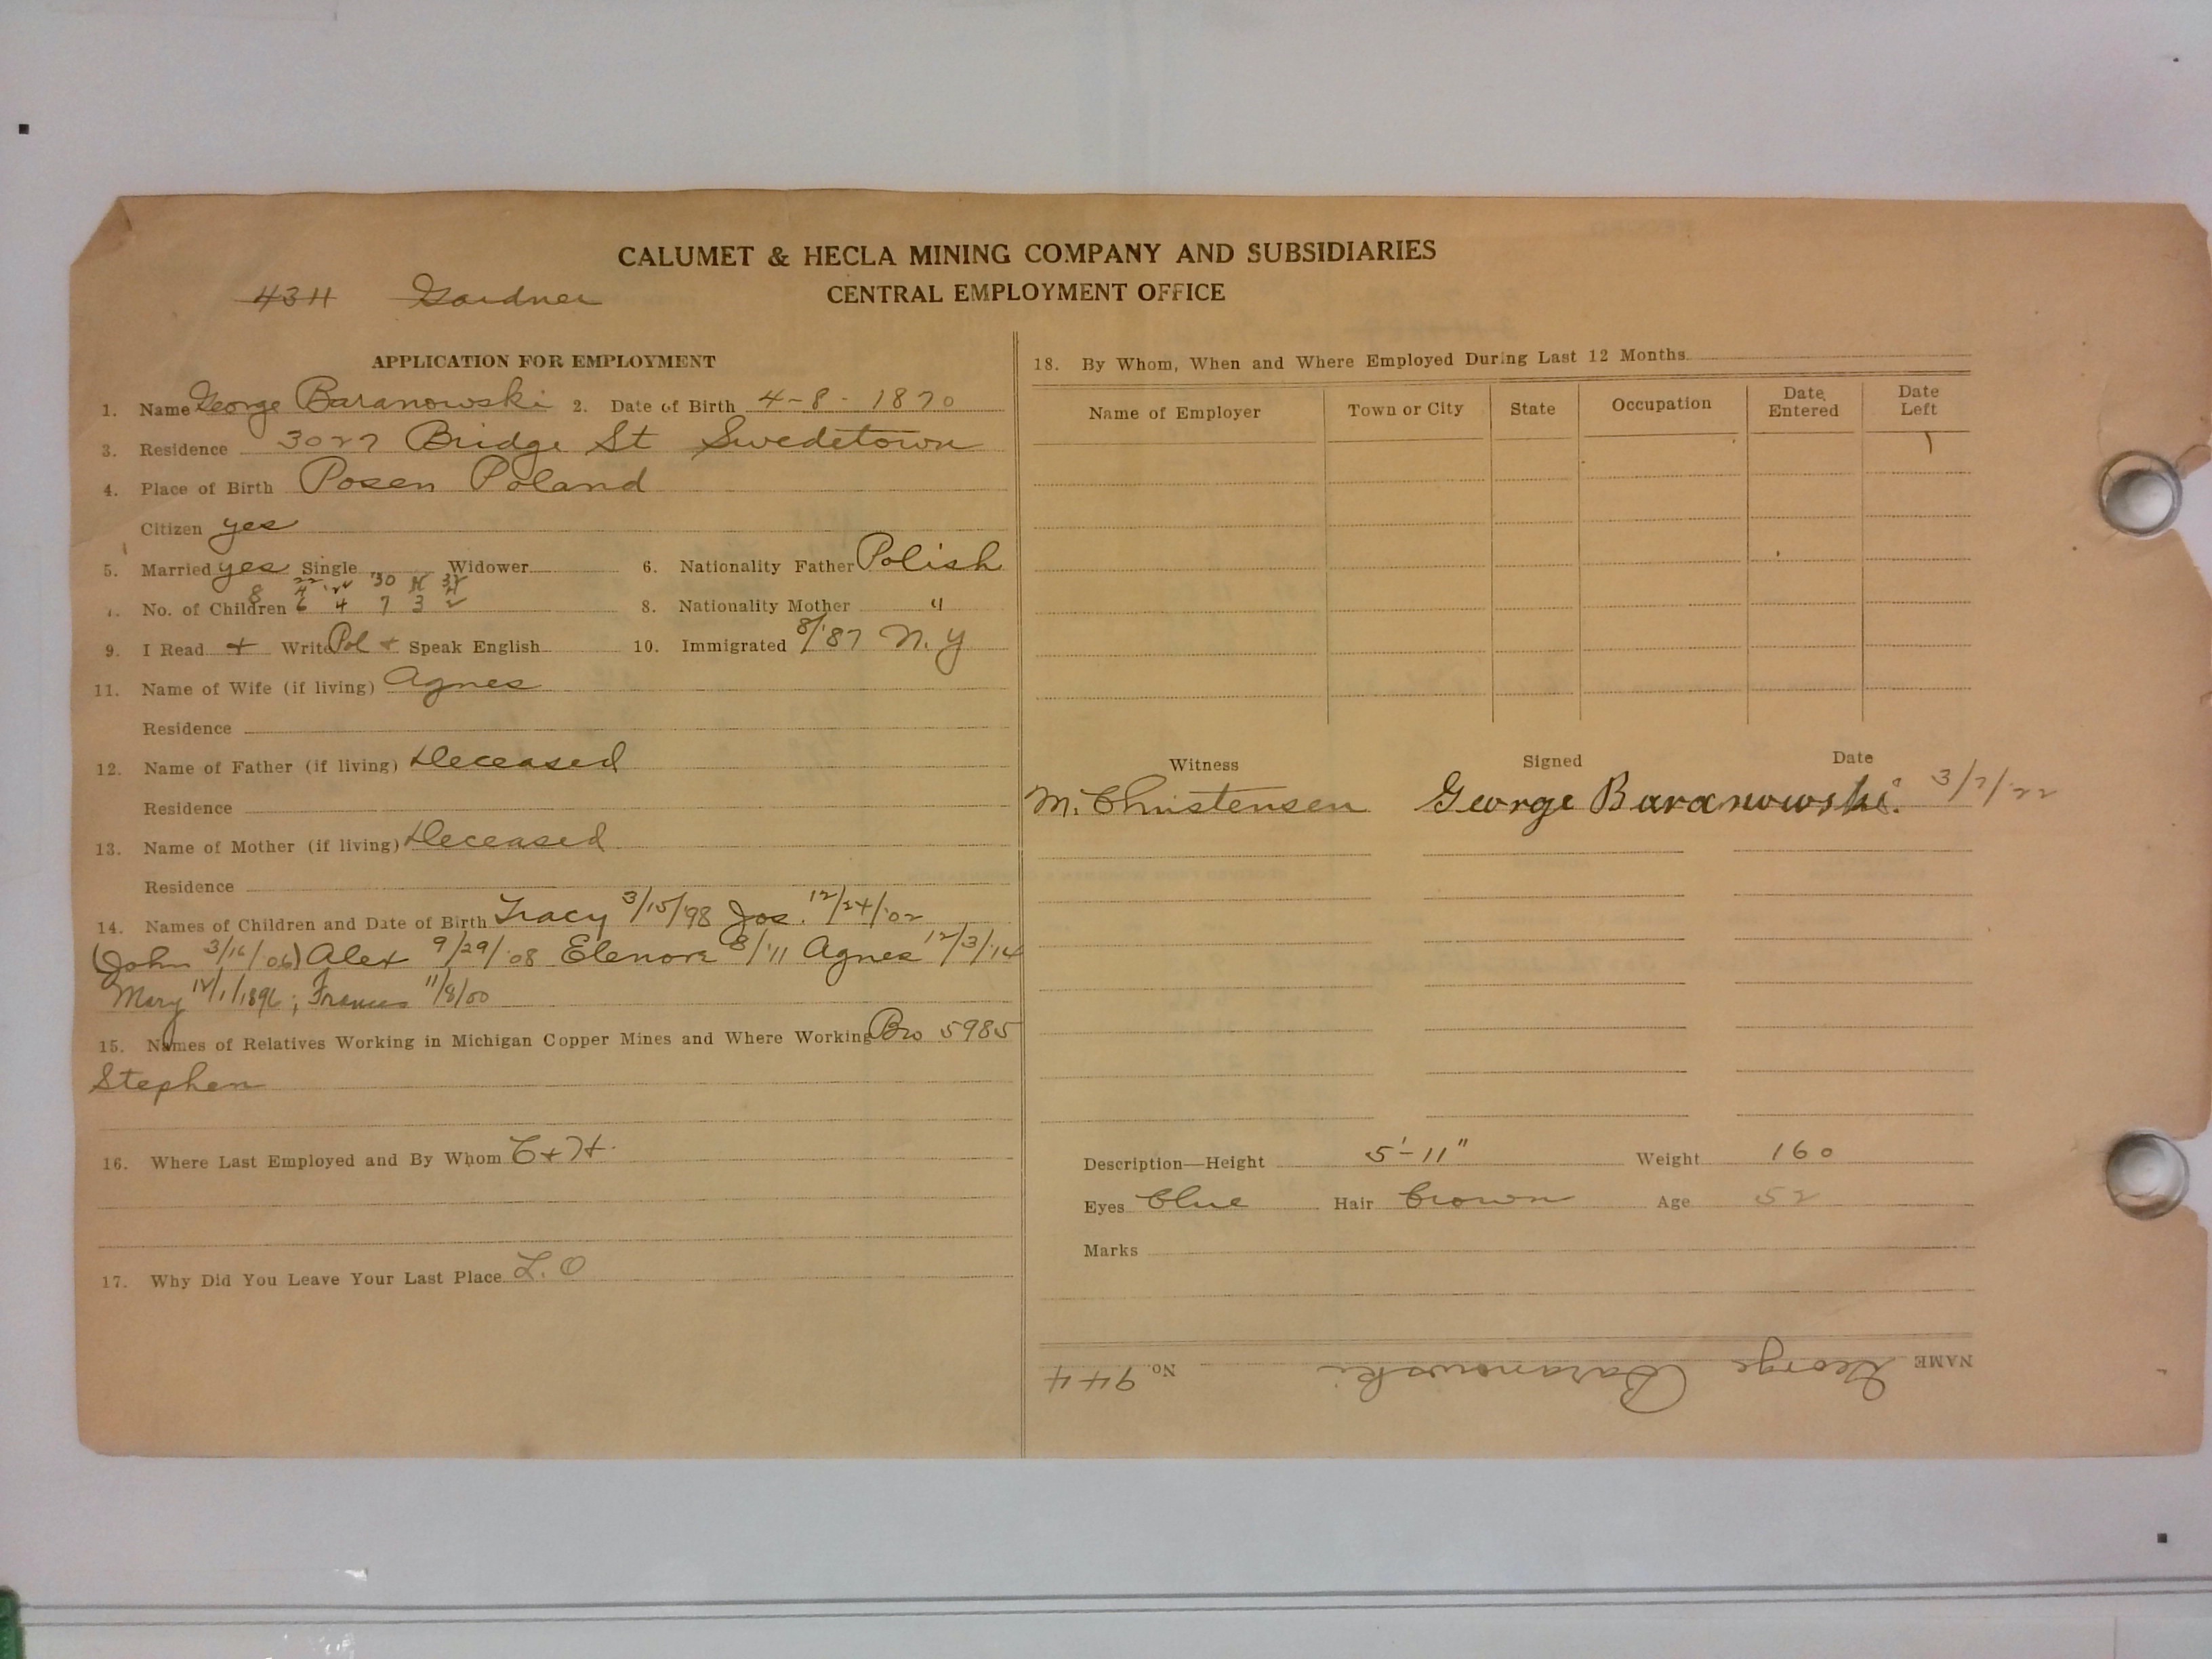 CALUMET & HECLA MINING COMPANY AND SUBSIDIARIES
43H Gardner CENTRAL EMPLOYMENT OFFICE
APPLICATION FOR EMPLOYMENT
1. Name George Baranowski 2. Date of Birth 4-8-1870
3. Residence 3027 Bridge St Swedetown
4. Place of Birth Posen Poland
Citizen yes
5. Married yes Single Widower 6. Nationality Father Polish
No. of Children 8 6 4 7 3 2 8. Nationality Mother "
9. I Read + Write Pol + Speak English 10. Immigrated 8/'87 N.Y
11. Name of Wife (if living) Agnes
Residence
12. Name of Father (if living) Deceased
Residence
13. Name of Mother (if living) Deceased
Residence
14. Names of Children and Date of Birth Tracy 3/15/'98 Jos. 12/24/'02
(John 3/16/06) Alex 9/29/'08 Elenore 8/'11 Agnes 12/3/'14
Mary 12/1/1896; Frances 11/8/00
15. Names of Relatives Working in Michigan Copper Mines and Where Working Bro 5985
Stephen
16. Where Last Employed and By Whom C+H
17. Why Did You Leave Your Last Place L.O
18. By Whom, When and Where Employed During Last 12 Months
Name of Employer Town or City State Occupation Date Entered Date Left
Witness Signed Date
M. Christensen George Baranowski. 3/7/22
Description—Height 5'-11" Weight 160
Eyes blue Hair brown Age 52
Marks
NAME George Baranowski No. 944